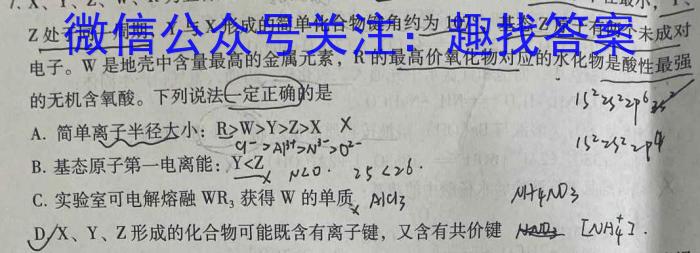 7. X、Y、Z、W、R
Z处 周期 Y与X形成的简单化合物键角约为 基态Z 有 个未成对
微信公众号关注：趣找答案
电子。W是地壳中含量最高的金属元素，R的最高价氧化物对应的水化物是酸性最强
的无机含氧酸。下列说法一定正确的是
1s²2s²2p⁶3s²
A. 简单离子半径大小：R>W>Y>Z>X X
Cl⁻>Al³⁺>N³⁻>O²⁻
1s²2s²2p⁴
B. 基态原子第一电离能：Y<Z X N<O. 2s<2s.
C. 实验室可电解熔融WR₃获得W的单质 X AlCl₃
NH₄NO₃
D. X、Y、Z形成的化合物可能既含有离子键，又含有共价键 [NH₄⁺].